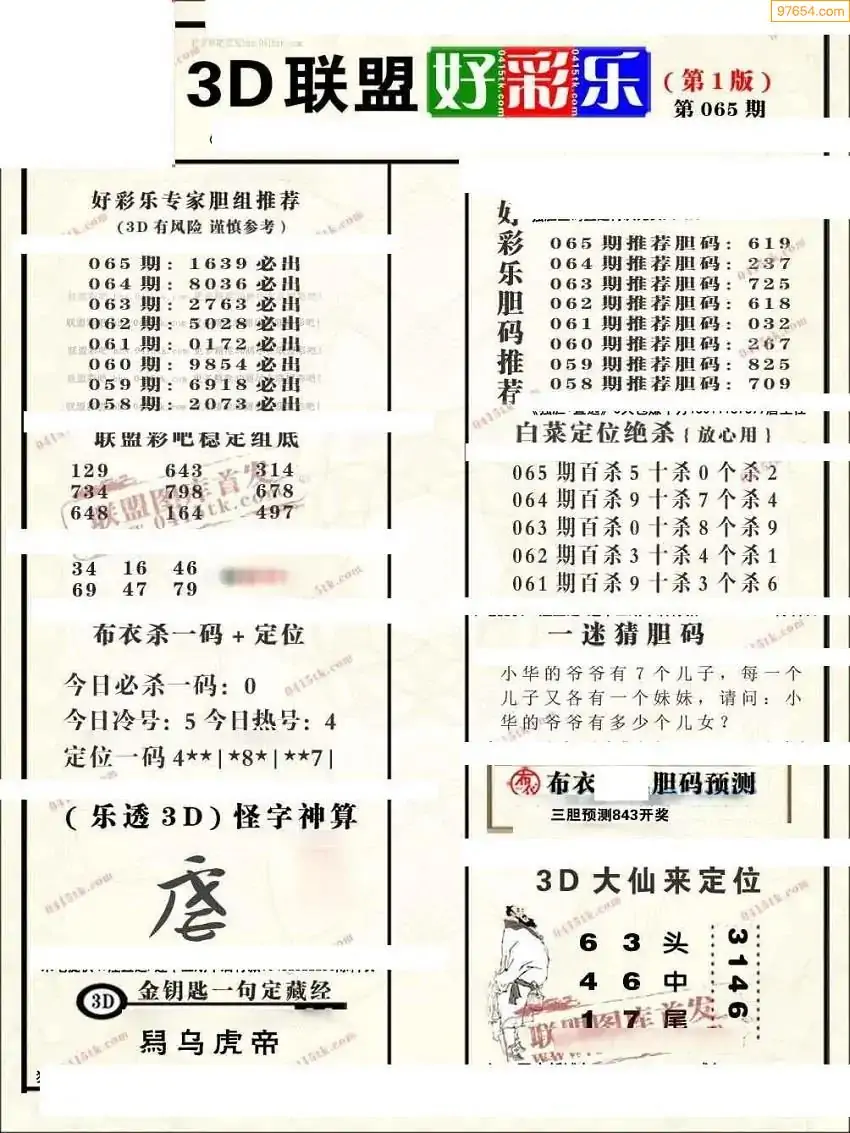 97654.com
3D联盟好彩乐
(第1版)
第065期
好彩乐专家胆组推荐
(3D有风险 谨慎参考)
065期: 1639必出
064期: 8036必出
063期: 2763必出
062期: 5028必出
061期: 0172必出
060期: 9854必出
059期: 6918必出
058期: 2073必出
联盟彩吧稳定组底
129 643 314
734 798 678
648 164 497
34 16 46
69 47 79
布衣杀一码+定位
今日必杀一码: 0
今日冷号: 5 今日热号: 4
定位一码4**|*8*|**7|
(乐透3D)怪字神算
3D 金钥匙一句定藏经
乌虎帝
好彩乐胆码推荐
065期推荐胆码: 619
064期推荐胆码: 237
063期推荐胆码: 725
062期推荐胆码: 618
061期推荐胆码: 032
060期推荐胆码: 267
059期推荐胆码: 825
058期推荐胆码: 709
白菜定位绝杀{放心用}
065期百杀5十杀0个杀2
064期百杀9十杀7个杀4
063期百杀0十杀8个杀9
062期百杀3十杀4个杀1
061期百杀9十杀3个杀6
一迷猜胆码
小华的爷爷有7个儿子，每一个
儿子又各有一个妹妹，请问：小
华的爷爷有多少个儿女？
布衣 胆码预测
三胆预测843开奖
3D大仙来定位
6 3 头
4 6 中
1 7 尾
3146
联盟图库首发
www.0415tk.com
0415tk.com